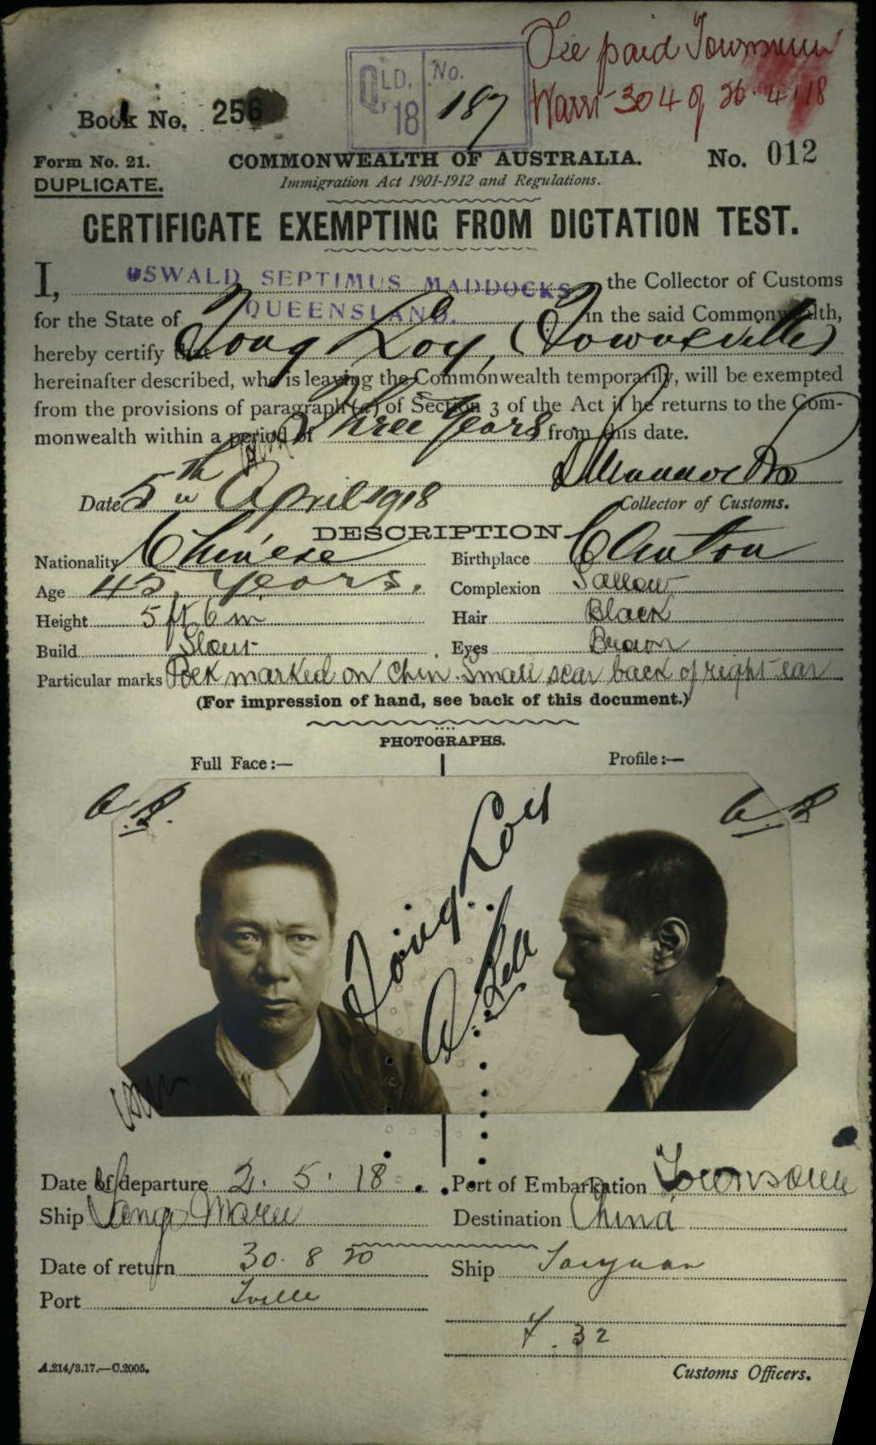 Fee paid Townsville
Warrt 304 of 26.4.18
QLD. No.
18 187
Book No. 256
Form No. 21. COMMONWEALTH OF AUSTRALIA. No. 012
DUPLICATE. Immigration Act 1901-1912 and Regulations.
CERTIFICATE EXEMPTING FROM DICTATION TEST.
I, OSWALD SEPTIMUS MADDOCKS the Collector of Customs
for the State of QUEENSLAND. in the said Commonwealth,
hereby certify that Tong Loy, (Townsville)
hereinafter described, who is leaving the Commonwealth temporarily, will be exempted
from the provisions of paragraph (a) of Section 3 of the Act if he returns to the Com-
monwealth within a period of Three Years from this date.
Date 5th April 1918 Collector of Customs.
DESCRIPTION
Nationality Chinese Birthplace Canton
Age 45 Years. Complexion Sallow
Height 5 ft 6 in Hair Black
Build Stout Eyes Brown
Particular marks Pock marked on chin. Small scar back of right ear
(For impression of hand, see back of this document.)
PHOTOGRAPHS.
Full Face:— Profile:—
Tong Loy
Date of departure 2.5.18 Port of Embarkation Townsville
Ship Tango Maru Destination China
Date of return 30.8.20 Ship Taiyuan
Port Tville
F. 32
A.214/3.17.—C.2005. Customs Officers.